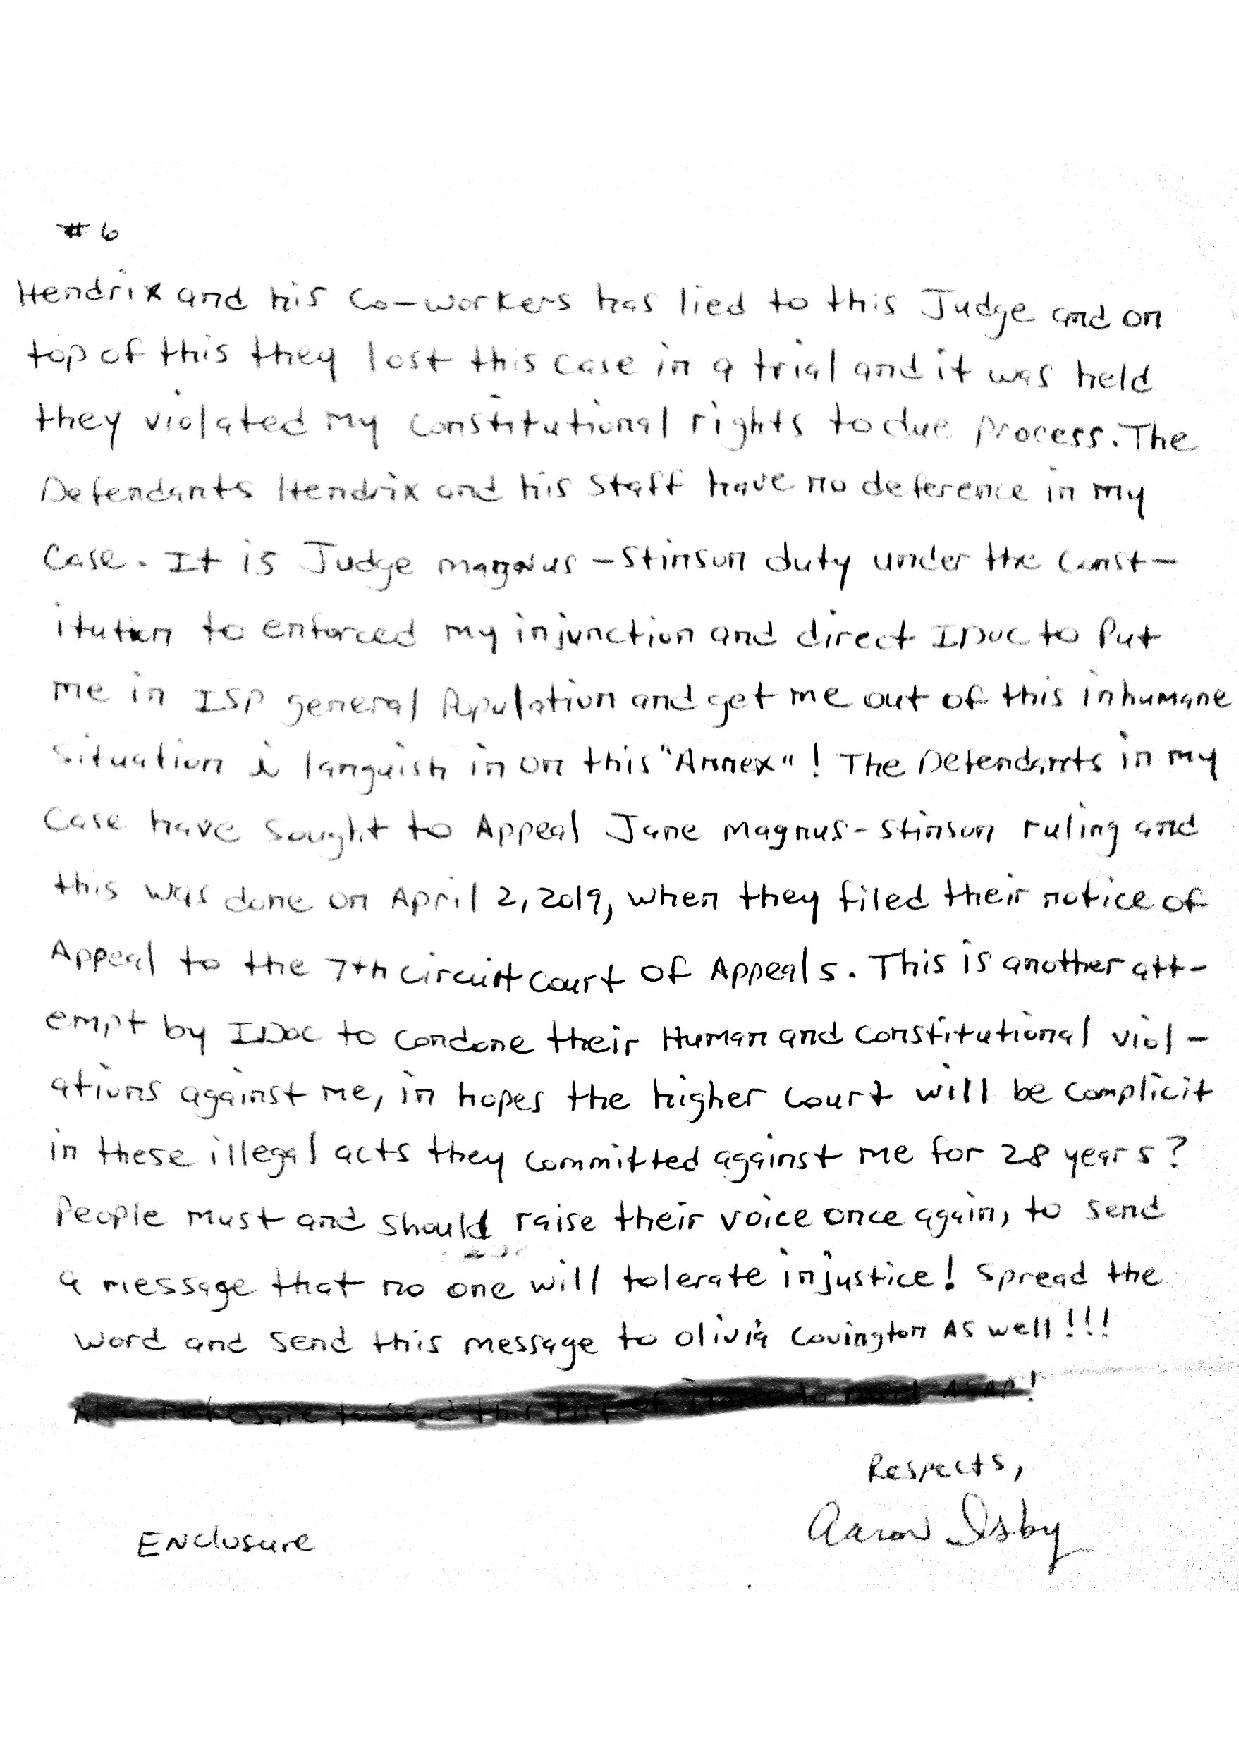 #6
Hendrix and his Co-workers has lied to this Judge and on
top of this they lost this case in a trial and it was held
they violated my constitutional rights to due process. The
Defendants Hendrix and his staff have no deference in my
case. It is Judge magnus-Stinson duty under the Const-
itution to enforced my injunction and direct IDOC to Put
me in ISP general Population and get me out of this inhumane
situation i languish in on this "Annex"! The Defendants in my
case have sought to Appeal Jane Magnus-Stinson ruling and
this was done on April 2, 2019, when they filed their notice of
Appeal to the 7th Circuit Court of Appeals. This is another att-
empt by IDOC to condone their Human and constitutional viol-
ations against me, in hopes the higher court will be complicit
in these illegal acts they committed against me for 28 years?
People must and should raise their voice once again, to send
a message that no one will tolerate injustice! Spread the
word and send this message to Olivia Covington As well!!!
Respects,
Aaron Isby
Enclosure